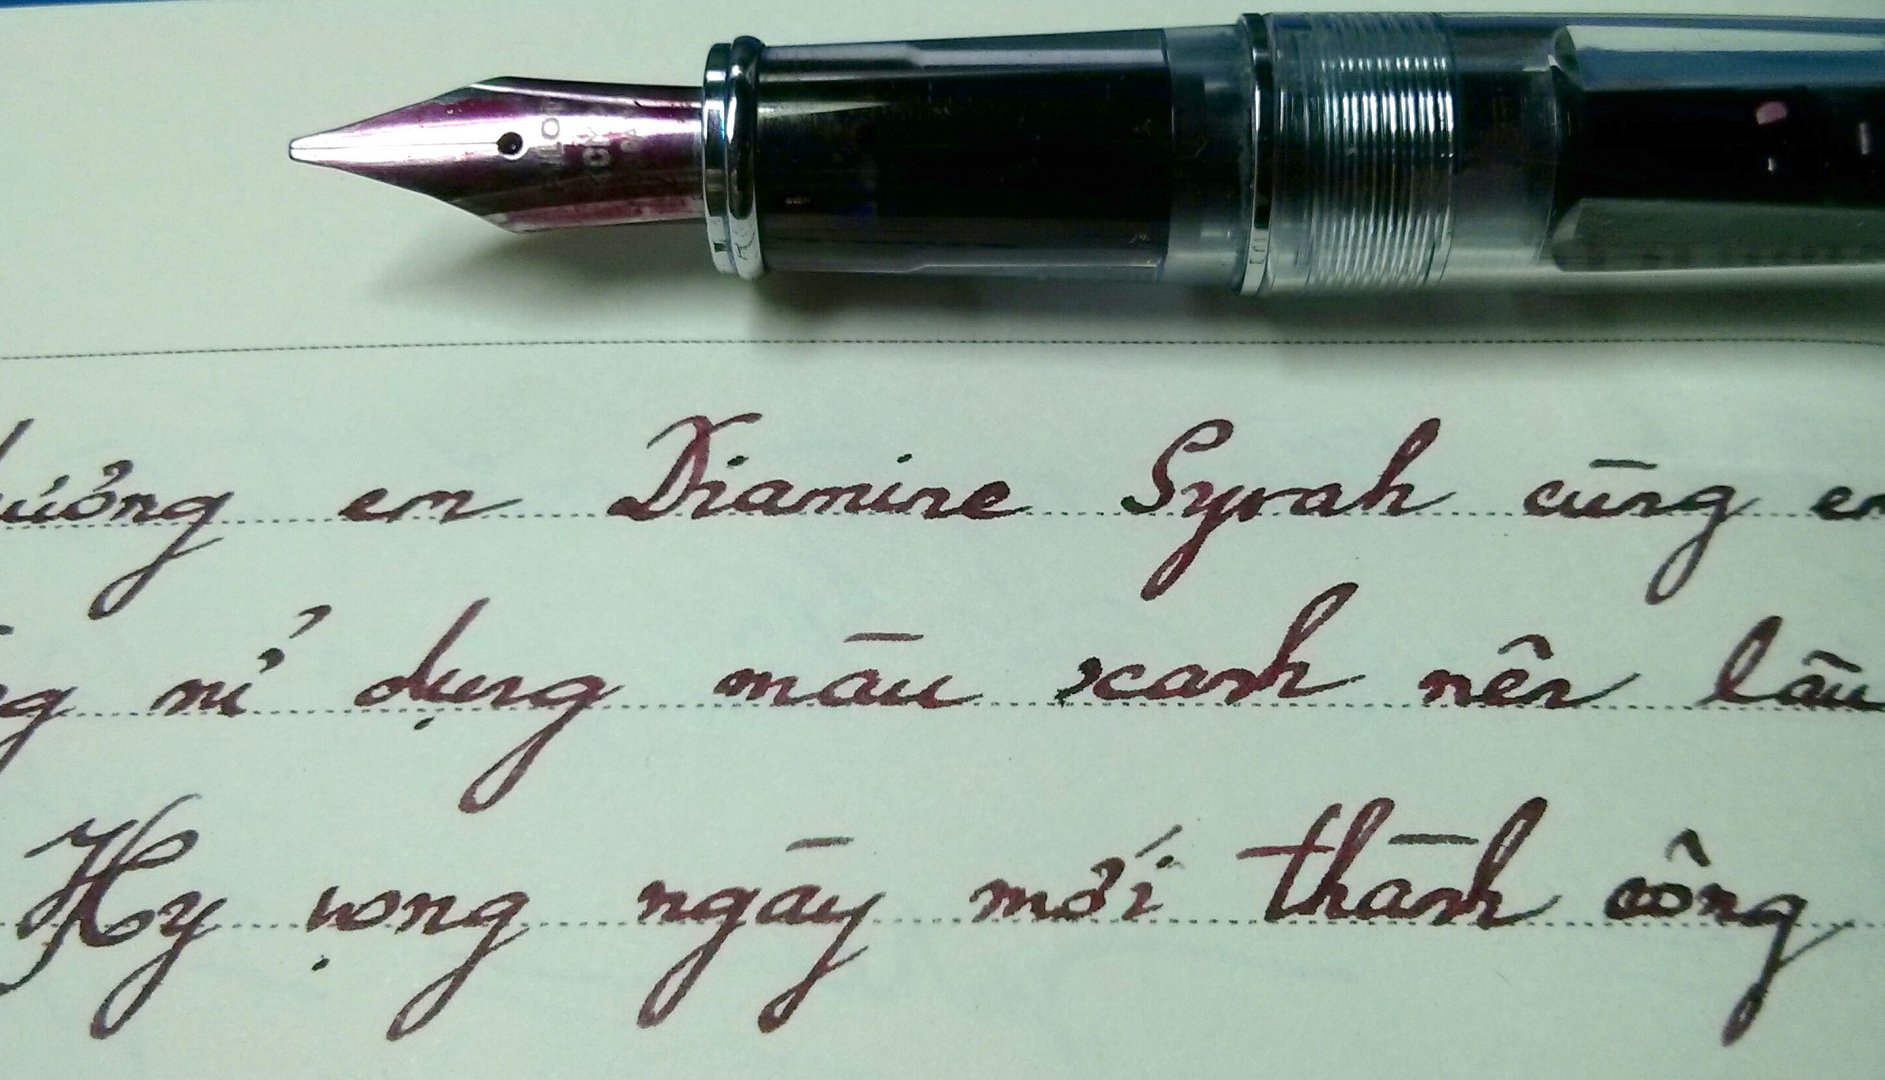 em Diamine Syrah cũng
sử dụng màu xanh nên
Hy vọng ngày mới thành công